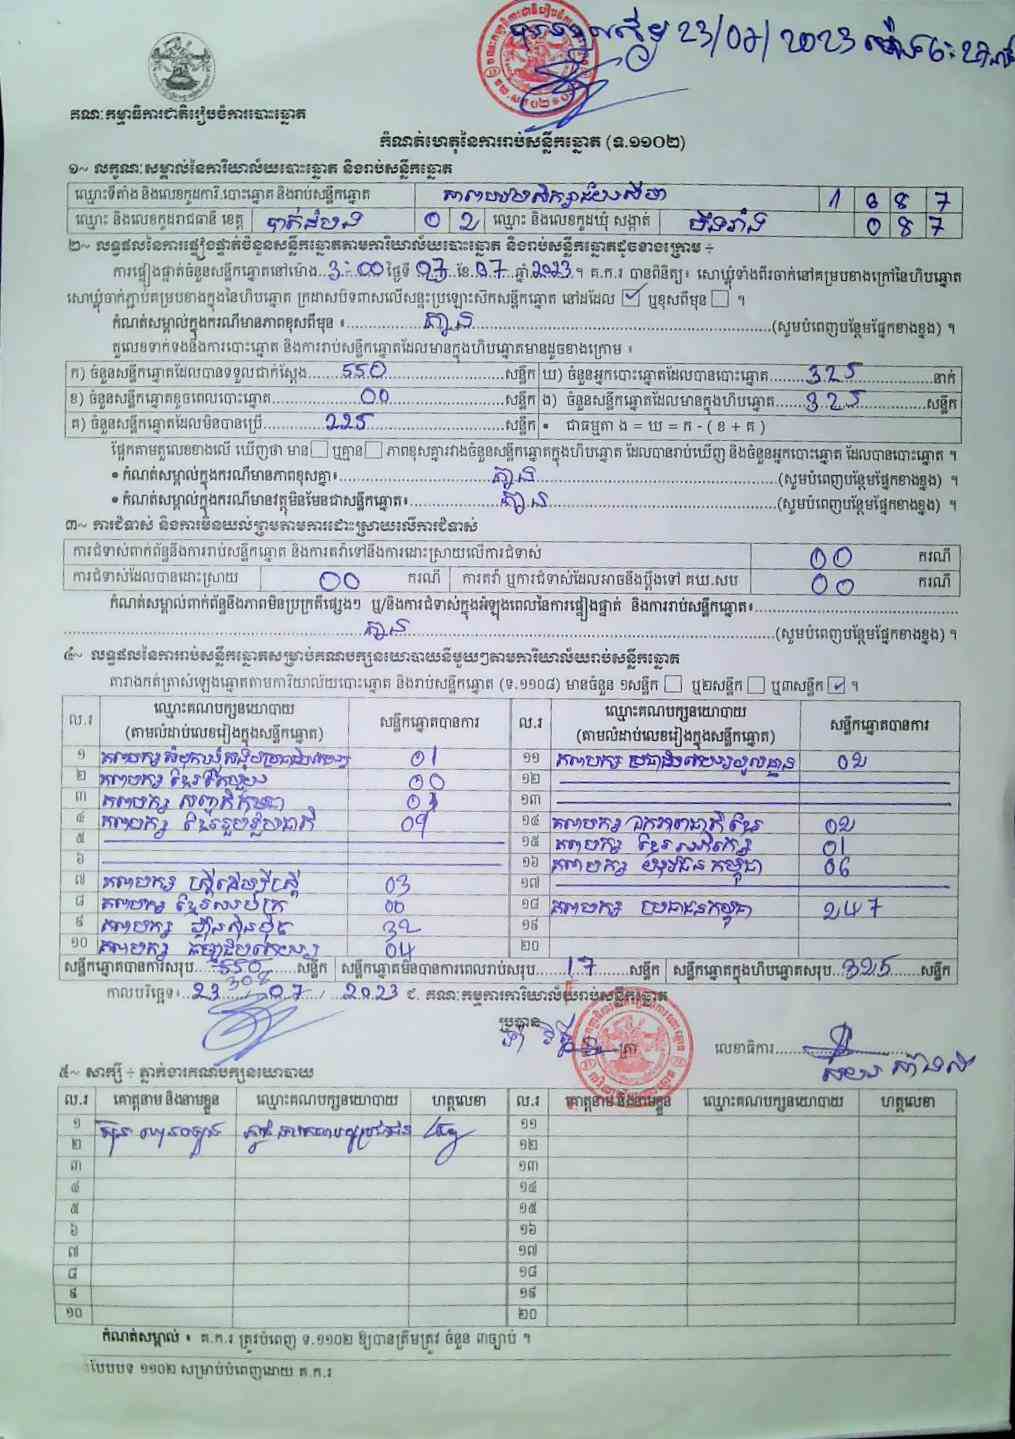 23/07/2023
គណៈកម្មាធិការជាតិរៀបចំការបោះឆ្នោត
កំណត់ហេតុនៃការរាប់សន្លឹកឆ្នោត (ទ.១១០២)
១~ លក្ខណៈសម្គាល់នៃការិយាល័យបោះឆ្នោត និងរាប់សន្លឹកឆ្នោត
ឈ្មោះទីតាំង និងលេខកូដការិ.បោះឆ្នោត និងរាប់សន្លឹកឆ្នោត 1 0 8 7
ឈ្មោះ និងលេខកូដរាជធានី ខេត្ត បាត់ដំបង 0 2 ឈ្មោះ និងលេខកូដឃុំ សង្កាត់ 0 8 7
២~ លទ្ធផលនៃការផ្ទៀងផ្ទាត់ចំនួនសន្លឹកឆ្នោតតាមការិយាល័យបោះឆ្នោត និងរាប់សន្លឹកឆ្នោតដូចខាងក្រោម ÷
ការផ្ទៀងផ្ទាត់ចំនួនសន្លឹកឆ្នោតនៅម៉ោង 3:00 ថ្ងៃទី 23 ខែ 07 ឆ្នាំ 2023 ។ គ.ក.រ បានពិនិត្យ៖ សោឃ្លុំទាំងពីរចាក់នៅគម្របខាងក្រៅនៃហិបឆ្នោត
សោឃ្លុំចាក់ភ្ជាប់គម្របខាងក្នុងនៃហិបឆ្នោត ក្រដាសបិទពាសលើសន្ទះប្រឡោះស៊កសន្លឹកឆ្នោត នៅដដែល ☑ ឬខុសពីមុន ☐ ។
កំណត់សម្គាល់ក្នុងករណីមានភាពខុសពីមុន ៖ គ្មាន (សូមបំពេញបន្ថែមផ្នែកខាងខ្នង) ។
តួលេខទាក់ទងនឹងការបោះឆ្នោត និងការរាប់សន្លឹកឆ្នោតដែលមានក្នុងហិបឆ្នោតមានដូចខាងក្រោម ៖
ក) ចំនួនសន្លឹកឆ្នោតដែលបានទទួលជាក់ស្តែង 550 សន្លឹក ឃ) ចំនួនអ្នកបោះឆ្នោតដែលបានបោះឆ្នោត 325 នាក់
ខ) ចំនួនសន្លឹកឆ្នោតខូចពេលបោះឆ្នោត 00 សន្លឹក ង) ចំនួនសន្លឹកឆ្នោតដែលមានក្នុងហិបឆ្នោត 325 សន្លឹក
គ) ចំនួនសន្លឹកឆ្នោតដែលមិនបានប្រើ 225 សន្លឹក • ជាធម្មតា ង = ឃ = ក - ( ខ + គ )
ផ្អែកតាមតួលេខខាងលើ ឃើញថា មាន ☐ ឬគ្មាន ☐ ភាពខុសគ្នារវាងចំនួនសន្លឹកឆ្នោតក្នុងហិបឆ្នោត ដែលបានរាប់ឃើញ និងចំនួនអ្នកបោះឆ្នោត ដែលបានបោះឆ្នោត ។
• កំណត់សម្គាល់ក្នុងករណីមានភាពខុសគ្នា៖ គ្មាន (សូមបំពេញបន្ថែមផ្នែកខាងខ្នង) ។
• កំណត់សម្គាល់ក្នុងករណីមានវត្ថុមិនមែនជាសន្លឹកឆ្នោត៖ គ្មាន (សូមបំពេញបន្ថែមផ្នែកខាងខ្នង) ។
៣~ ការជំទាស់ និងការមិនយល់ព្រមតាមការដោះស្រាយលើការជំទាស់
ការជំទាស់ពាក់ព័ន្ធនឹងការរាប់សន្លឹកឆ្នោត និងការតវ៉ាទៅនឹងការដោះស្រាយលើការជំទាស់ 00 ករណី
ការជំទាស់ដែលបានដោះស្រាយ 00 ករណី ការតវ៉ា ឬការជំទាស់ដែលអាចនឹងប្តឹងទៅ គឃ.សប 00 ករណី
កំណត់សម្គាល់ពាក់ព័ន្ធនឹងភាពមិនប្រក្រតីផ្សេងៗ ឬ/និងការជំទាស់ក្នុងអំឡុងពេលនៃការផ្ទៀងផ្ទាត់ និងការរាប់សន្លឹកឆ្នោត៖
គ្មាន (សូមបំពេញបន្ថែមផ្នែកខាងខ្នង) ។
៤~ លទ្ធផលនៃការរាប់សន្លឹកឆ្នោតសម្រាប់គណបក្សនយោបាយនីមួយៗតាមការិយាល័យរាប់សន្លឹកឆ្នោត
តារាងកត់ត្រាសំឡេងឆ្នោតតាមការិយាល័យបោះឆ្នោត និងរាប់សន្លឹកឆ្នោត (ទ.១១០៨) មានចំនួន ១សន្លឹក ☐ ឬ២សន្លឹក ☐ ឬ៣សន្លឹក ☑ ។
ល.រ ឈ្មោះគណបក្សនយោបាយ (តាមលំដាប់លេខរៀងក្នុងសន្លឹកឆ្នោត) សន្លឹកឆ្នោតបានការ ល.រ ឈ្មោះគណបក្សនយោបាយ (តាមលំដាប់លេខរៀងក្នុងសន្លឹកឆ្នោត) សន្លឹកឆ្នោតបានការ
១ គណបក្ស 01 ១១ គណបក្ស 02
២ គណបក្ស 00 ១២
៣ គណបក្ស ១៣
៤ គណបក្ស ខ្មែររួបរួមជាតិ 09 ១៤ គណបក្ស ឯកភាពជាតិខ្មែរ 02
៥ ១៥ គណបក្ស 01
៦ ១៦ គណបក្ស យុវជនកម្ពុជា 06
៧ គណបក្ស ស្ត្រីដើម្បីស្ត្រី 03 ១៧
៨ គណបក្ស 00 ១៨ គណបក្ស ប្រជាជនកម្ពុជា 247
៩ គណបក្ស ហ៊្វុនស៊ិនប៉ិច 32 ១៩
១០ គណបក្ស 04 ២០
សន្លឹកឆ្នោតបានការសរុប 550 308 សន្លឹក សន្លឹកឆ្នោតមិនបានការពេលរាប់សរុប 17 សន្លឹក សន្លឹកឆ្នោតក្នុងហិបឆ្នោតសរុប 325 សន្លឹក
កាលបរិច្ឆេទ៖ 23 / 07 / 2023 ជ. គណៈកម្មការការិយាល័យរាប់សន្លឹកឆ្នោត
ប្រធាន
ត្រា
លេខាធិការ
៥~ សាក្សី ÷ ភ្នាក់ងារគណបក្សនយោបាយ
ល.រ គោត្តនាម និងនាមខ្លួន ឈ្មោះគណបក្សនយោបាយ ហត្ថលេខា ល.រ គោត្តនាម និងនាមខ្លួន ឈ្មោះគណបក្សនយោបាយ ហត្ថលេខា
១ ១១
២ ១២
៣ ១៣
៤ ១៤
៥ ១៥
៦ ១៦
៧ ១៧
៨ ១៨
៩ ១៩
១០ ២០
កំណត់សម្គាល់ ៖ គ.ក.រ ត្រូវបំពេញ ទ.១១០២ ឱ្យបានត្រឹមត្រូវ ចំនួន ៣ច្បាប់ ។
បែបបទ ១១០២ សម្រាប់បំពេញដោយ គ.ក.រ